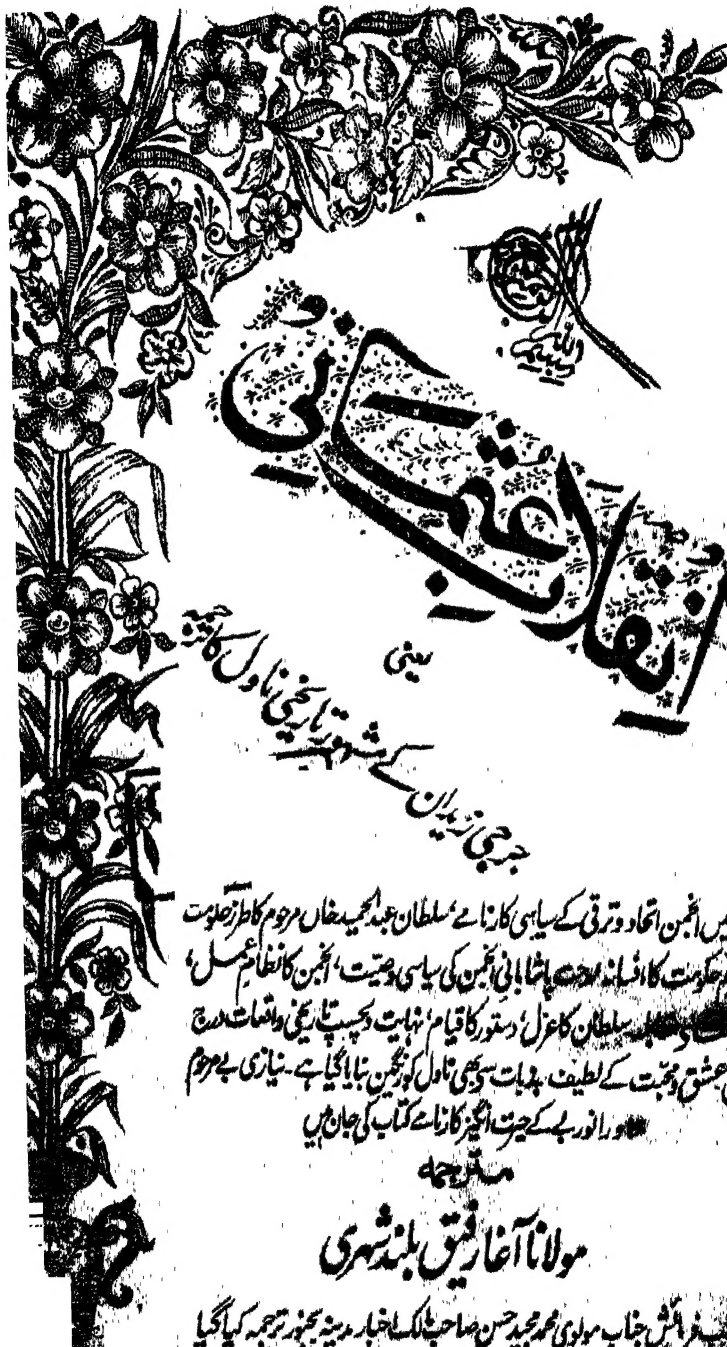 انقلاب عثمانی
یعنی
جرجی زیدان کے مشہور تاریخی ناول کا ترجمہ
میں انجمن اتحاد و ترقی کے سیاسی کارنامے، سلطان عبدالحمید خاں مرحوم کا طرز حکومت
حکومت کا افسانہ مدحت پاشا بانیٔ انجمن کی سیاسی وصیت، انجمن کا نظام عمل،
سلطان کا عزل، دستور کا قیام، نہایت دلچسپ تاریخی واقعات درج
عشق و محبت کے لطیف جذبات سے بھی ناول کو رنگین بنایا گیا ہے۔ نیازی بے مرحوم
اور انور بے کے حیرت انگیز کارنامے کتاب کی جان ہیں
مترجمہ
مولانا آغا رفیق بلند شہری
فرمائش جناب مولوی محمد مجید حسن صاحب مالک اخبار مدینہ بجنور ترجمہ کیا گیا